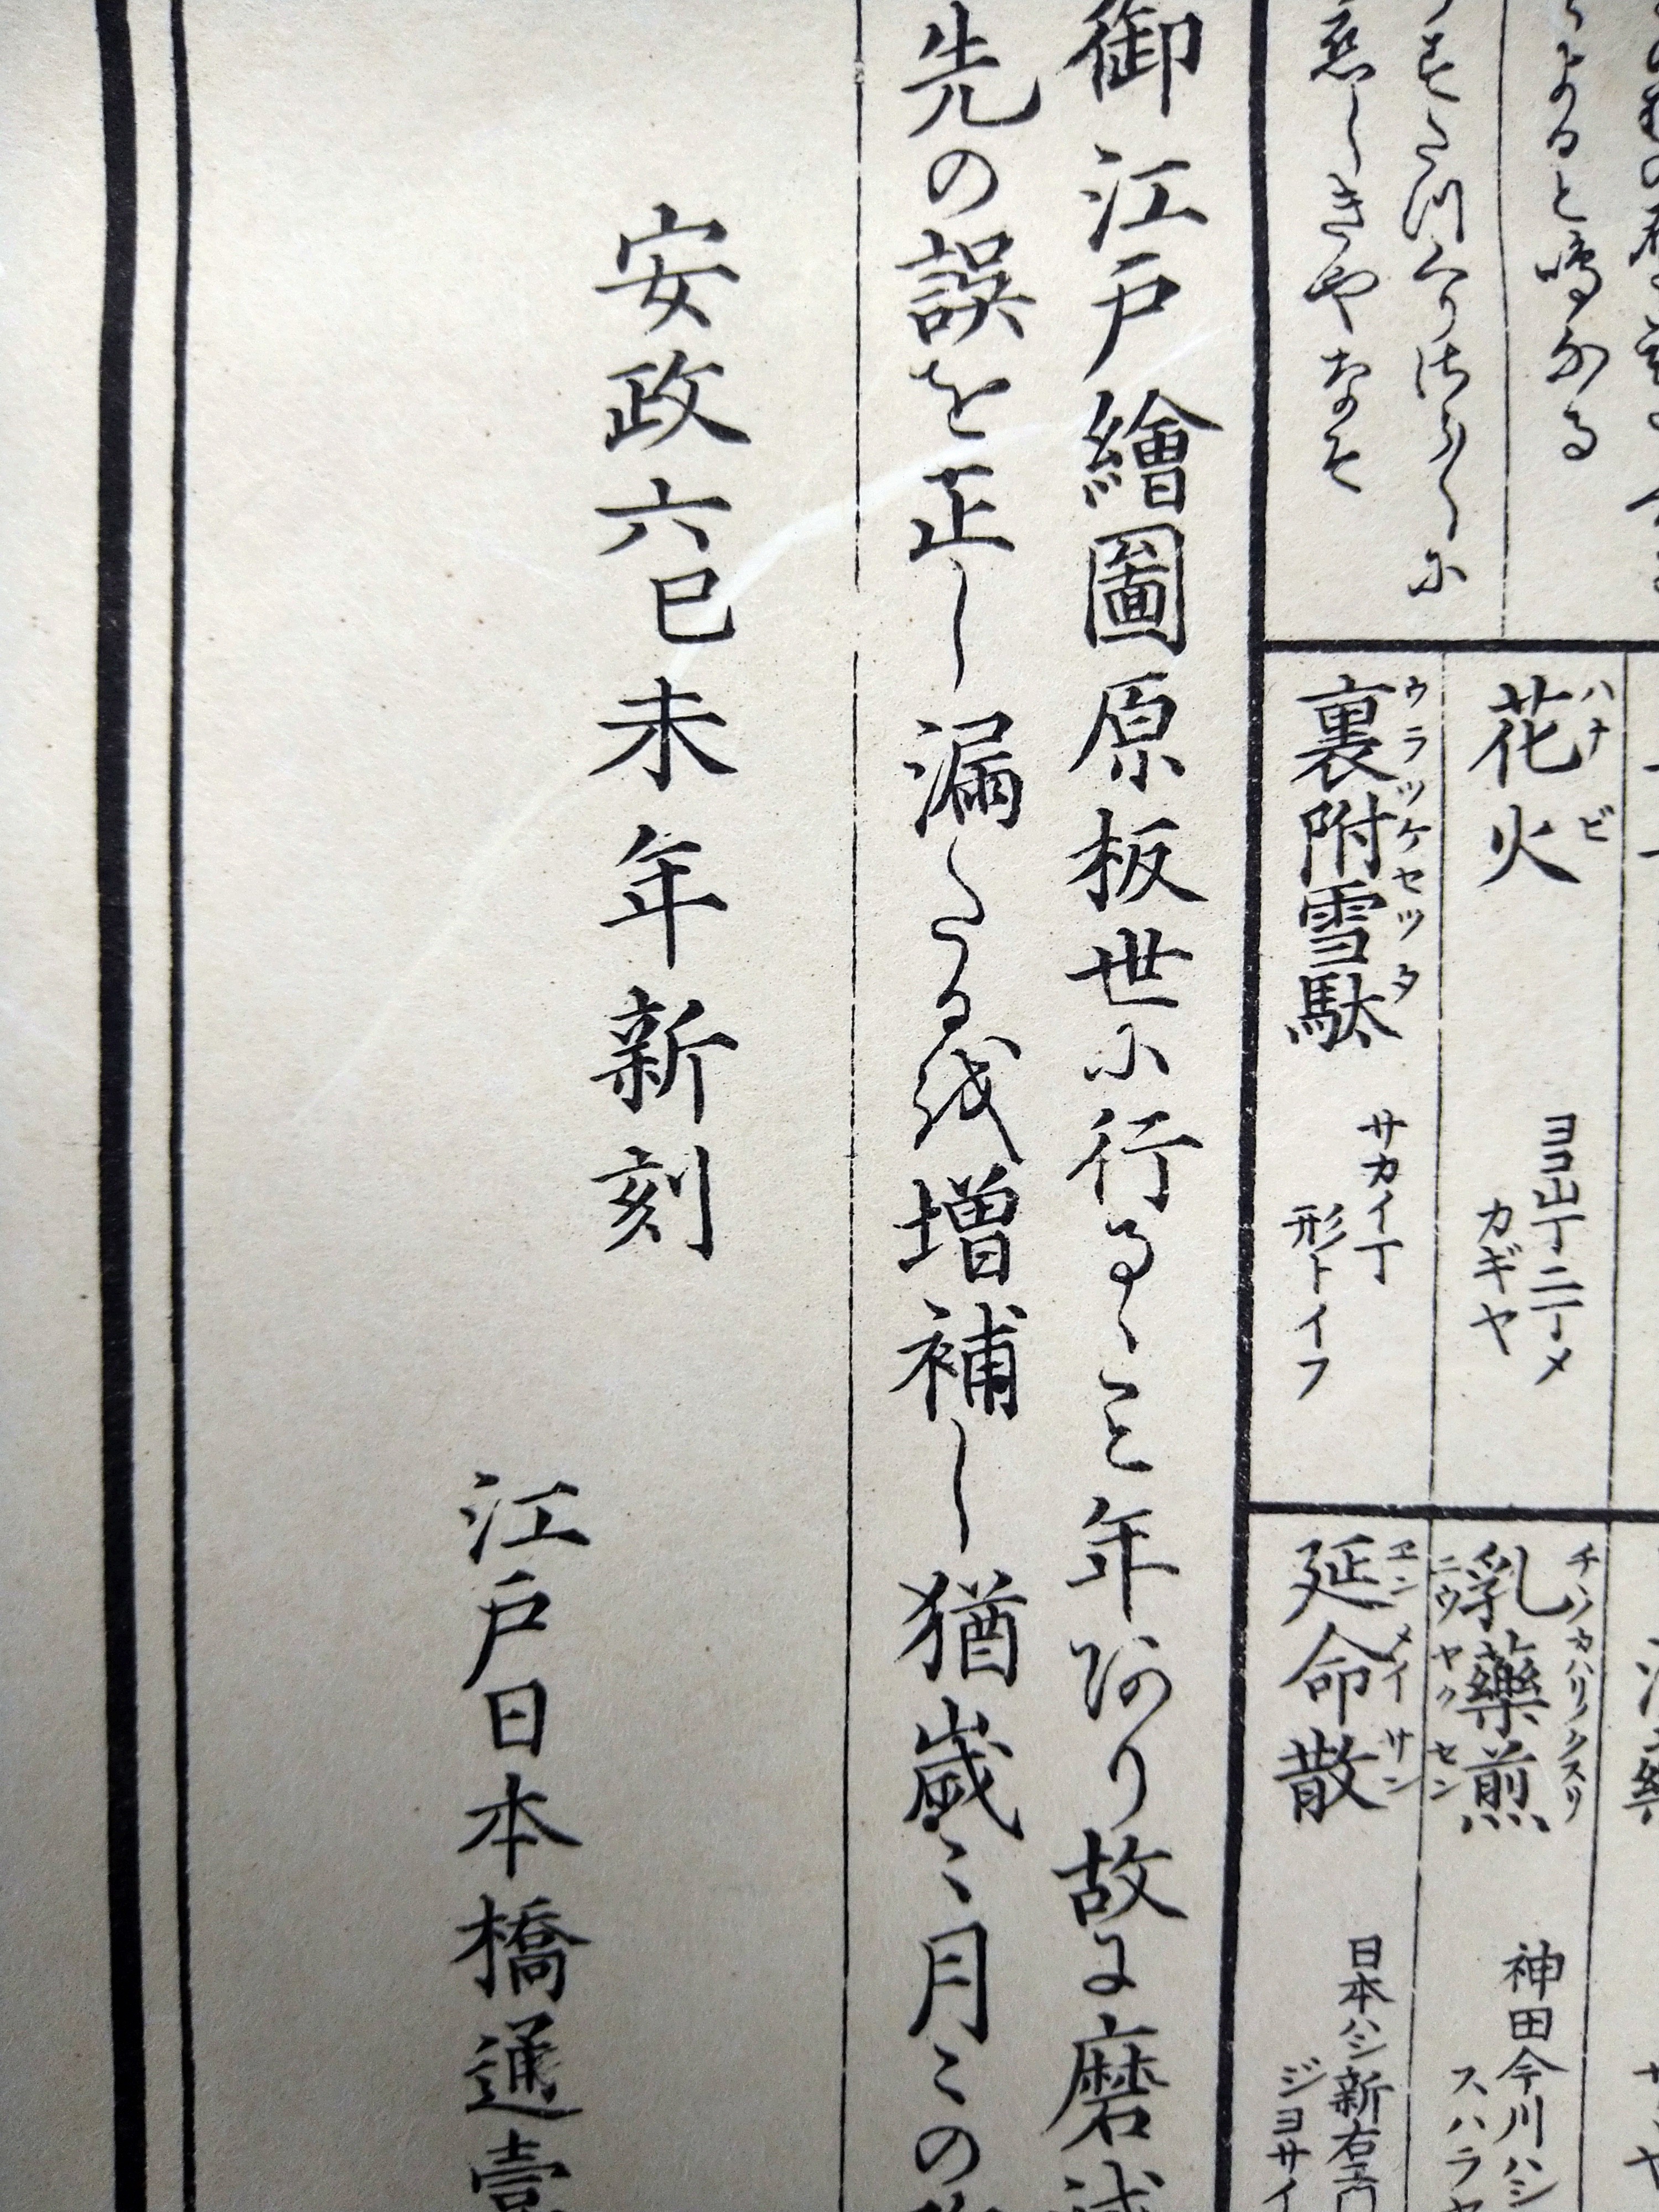 よると鳴かる
戀しきやなそ
花火
ハナビ
ヨコ山丁二丁メ
カギヤ
裏附雪駄
ウラツケセツタ
サカイ丁
形トイフ
乳藥煎
チノカハリノクスリ
ニウヤクセン
神田今川ハシ
スハラヤ
延命散
ヱンメイサン
日本ハシ新右エ門
ジヨサイ
御江戸繪圖原板世に行るゝこと年あり故に磨滅
先の誤を正し漏たるを増補し猶歳〻月〻の
安政六己未年新刻
江戸日本橋通壹